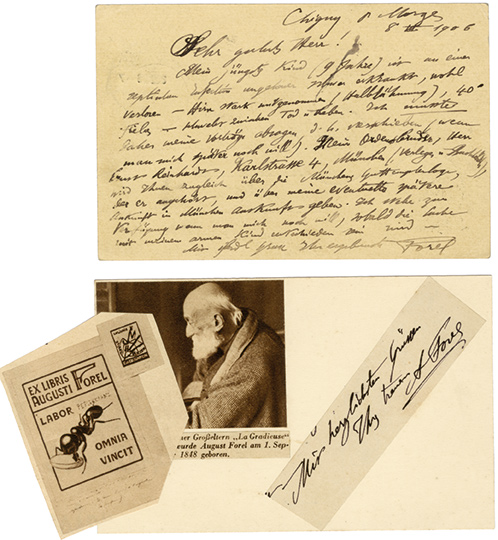 Chigny p. Morges
8 VII 1906
Sehr geehrter Herr!
Mein jüngstes Kind (9 Jahre) ist an einer
septischen Infektion ungeheuer schwer erkrankt, wohl
verloren – Hirn stark mitgenommen (Halblähmung), 40°
Fieber – schwebt zwischen Tod u Leben. Ich müsste
daher meine Vorträge absagen, d. h. verschieben, (wenn
man mich später noch will). Mein Ordensbruder, Herr
Ernst Reinhardt, Karlstrasse 4, München (Verleger u
wird Ihnen zugleich über die Münchner Guttemplerloge,
der er angehört, und über meine eventuelle spätere
Ankunft in München Auskunft geben. Ich stehe zur
Verfügung wenn man mich noch will, sobald die Sache
mit meinem armen Kind entschieden sein wird –
Mit Gruss Ihr ergebenster Forel
EX LIBRIS
AUGUSTI FOREL
LABOR
OMNIA
VINCIT
ner Großeltern „La Gracieuse"
urde August Forel am 1. Sep-
1848 geboren.
Mit herzlichsten Grüssen
Ihr treuer A Forel